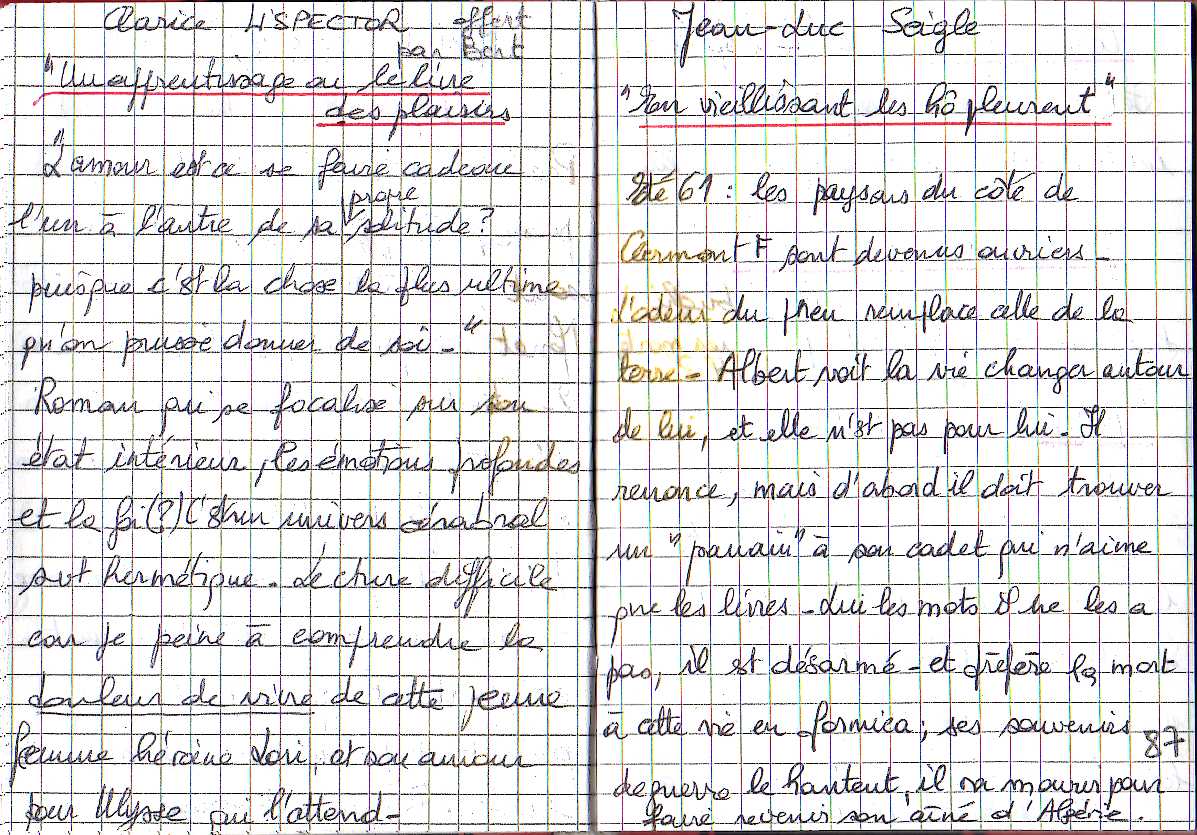 Clarice LISPECTOR offert
par Bert
"Un apprentissage ou le livre
des plaisirs
"L'amour est ce se faire cadeau
propre
l'un à l'autre de sa solitude?
puisque c'st la chose la plus ultime
qu'on puisse donner de soi_"
Roman qui se focalise sur son
état intérieur, les émotions profondes
et la foi(?) C'st un univers cérébral
sut hermétique_ Lecture difficile
car je peine à comprendre la
douleur de vivre de cette jeune
femme héroïne Lori, et son amour
pour Ulysse qui l'attend_
Jean-Luc Seigle
"En vieillissant les hô pleurent"
Eté 61 : les paysans du côté de
Clermont F sont devenus ouviers_
L'odeur du pneu remplace celle de la
terre_ Albert voit la vie changer autour
de lui, et elle n'st pas pour lui_ Il
renonce, mais d'abord il doit trouver
un "parrain" à son cadet qui n'aime
que les livres_ Lui les mots il ne les a
pas, il st désarmé_ et préfère la mort
à cette vie en formica; ses souvenirs
87
de guerre le hantent, il va mourir pour
faire revenir son aîné d'Algérie.